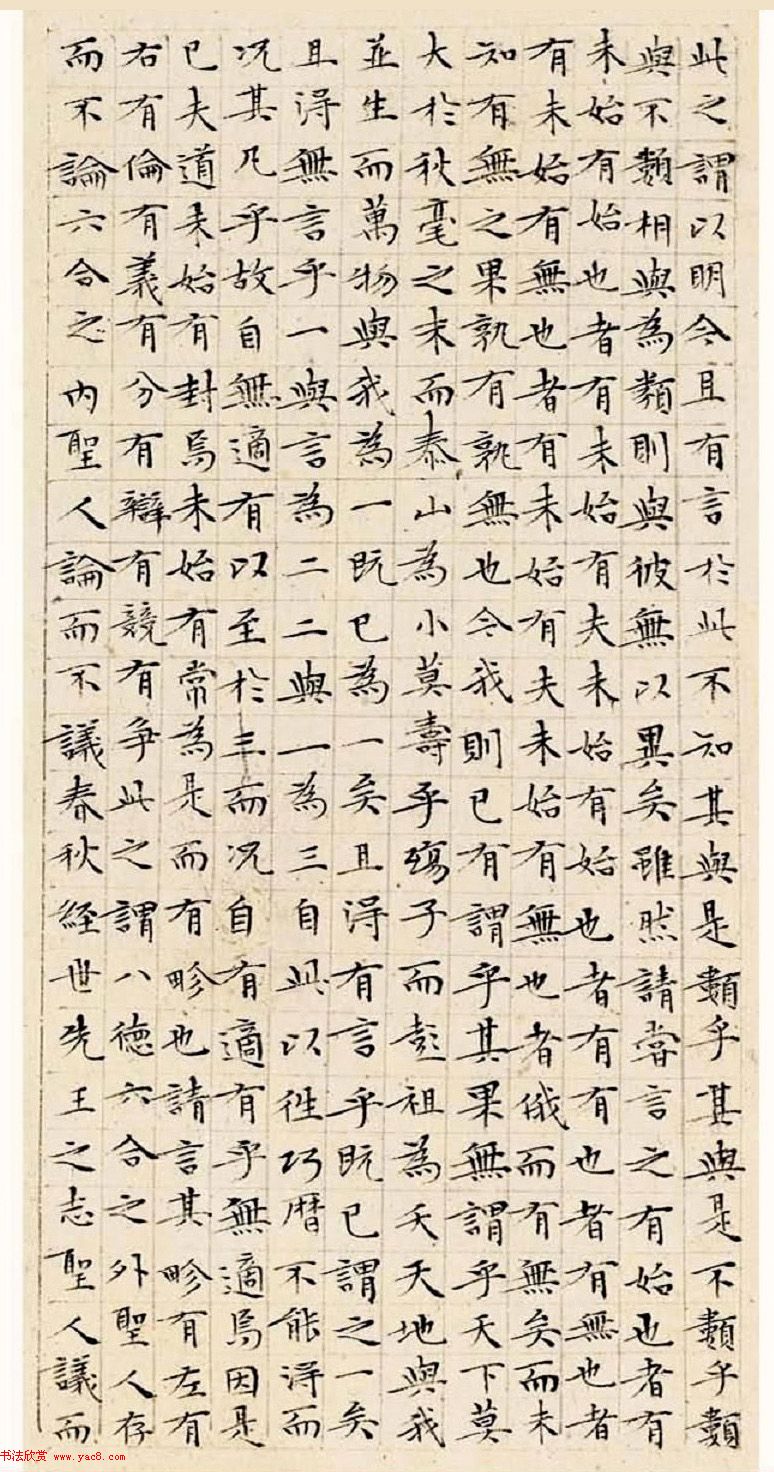 此之謂以明今且有言於此不知其與是類乎其與是不類乎類
與不類相與為類則與彼無以異矣雖然請嘗言之有始也者有
未始有始也者有未始有夫未始有始也者有有也者有無也者
有未始有無也者有未始有夫未始有無也者俄而有無矣而未
知有無之果孰有孰無也今我則已有謂乎其果無謂乎天下莫
大於秋毫之末而泰山為小莫壽乎殤子而彭祖為夭天地與我
並生而萬物與我為一既已為一矣且得有言乎既已謂之一矣
且得無言乎一與言為二二與一為三自此以往巧曆不能得而
況其凡乎故自無適有以至於三而況自有適有乎無適焉因是
已夫道未始有封焉未始有常為是而有畛也請言其畛有左有
右有倫有義有分有辯有競有爭此之謂八德六合之外聖人存
而不論六合之內聖人論而不議春秋經世先王之志聖人議而
书法欣赏 www.yac8.com